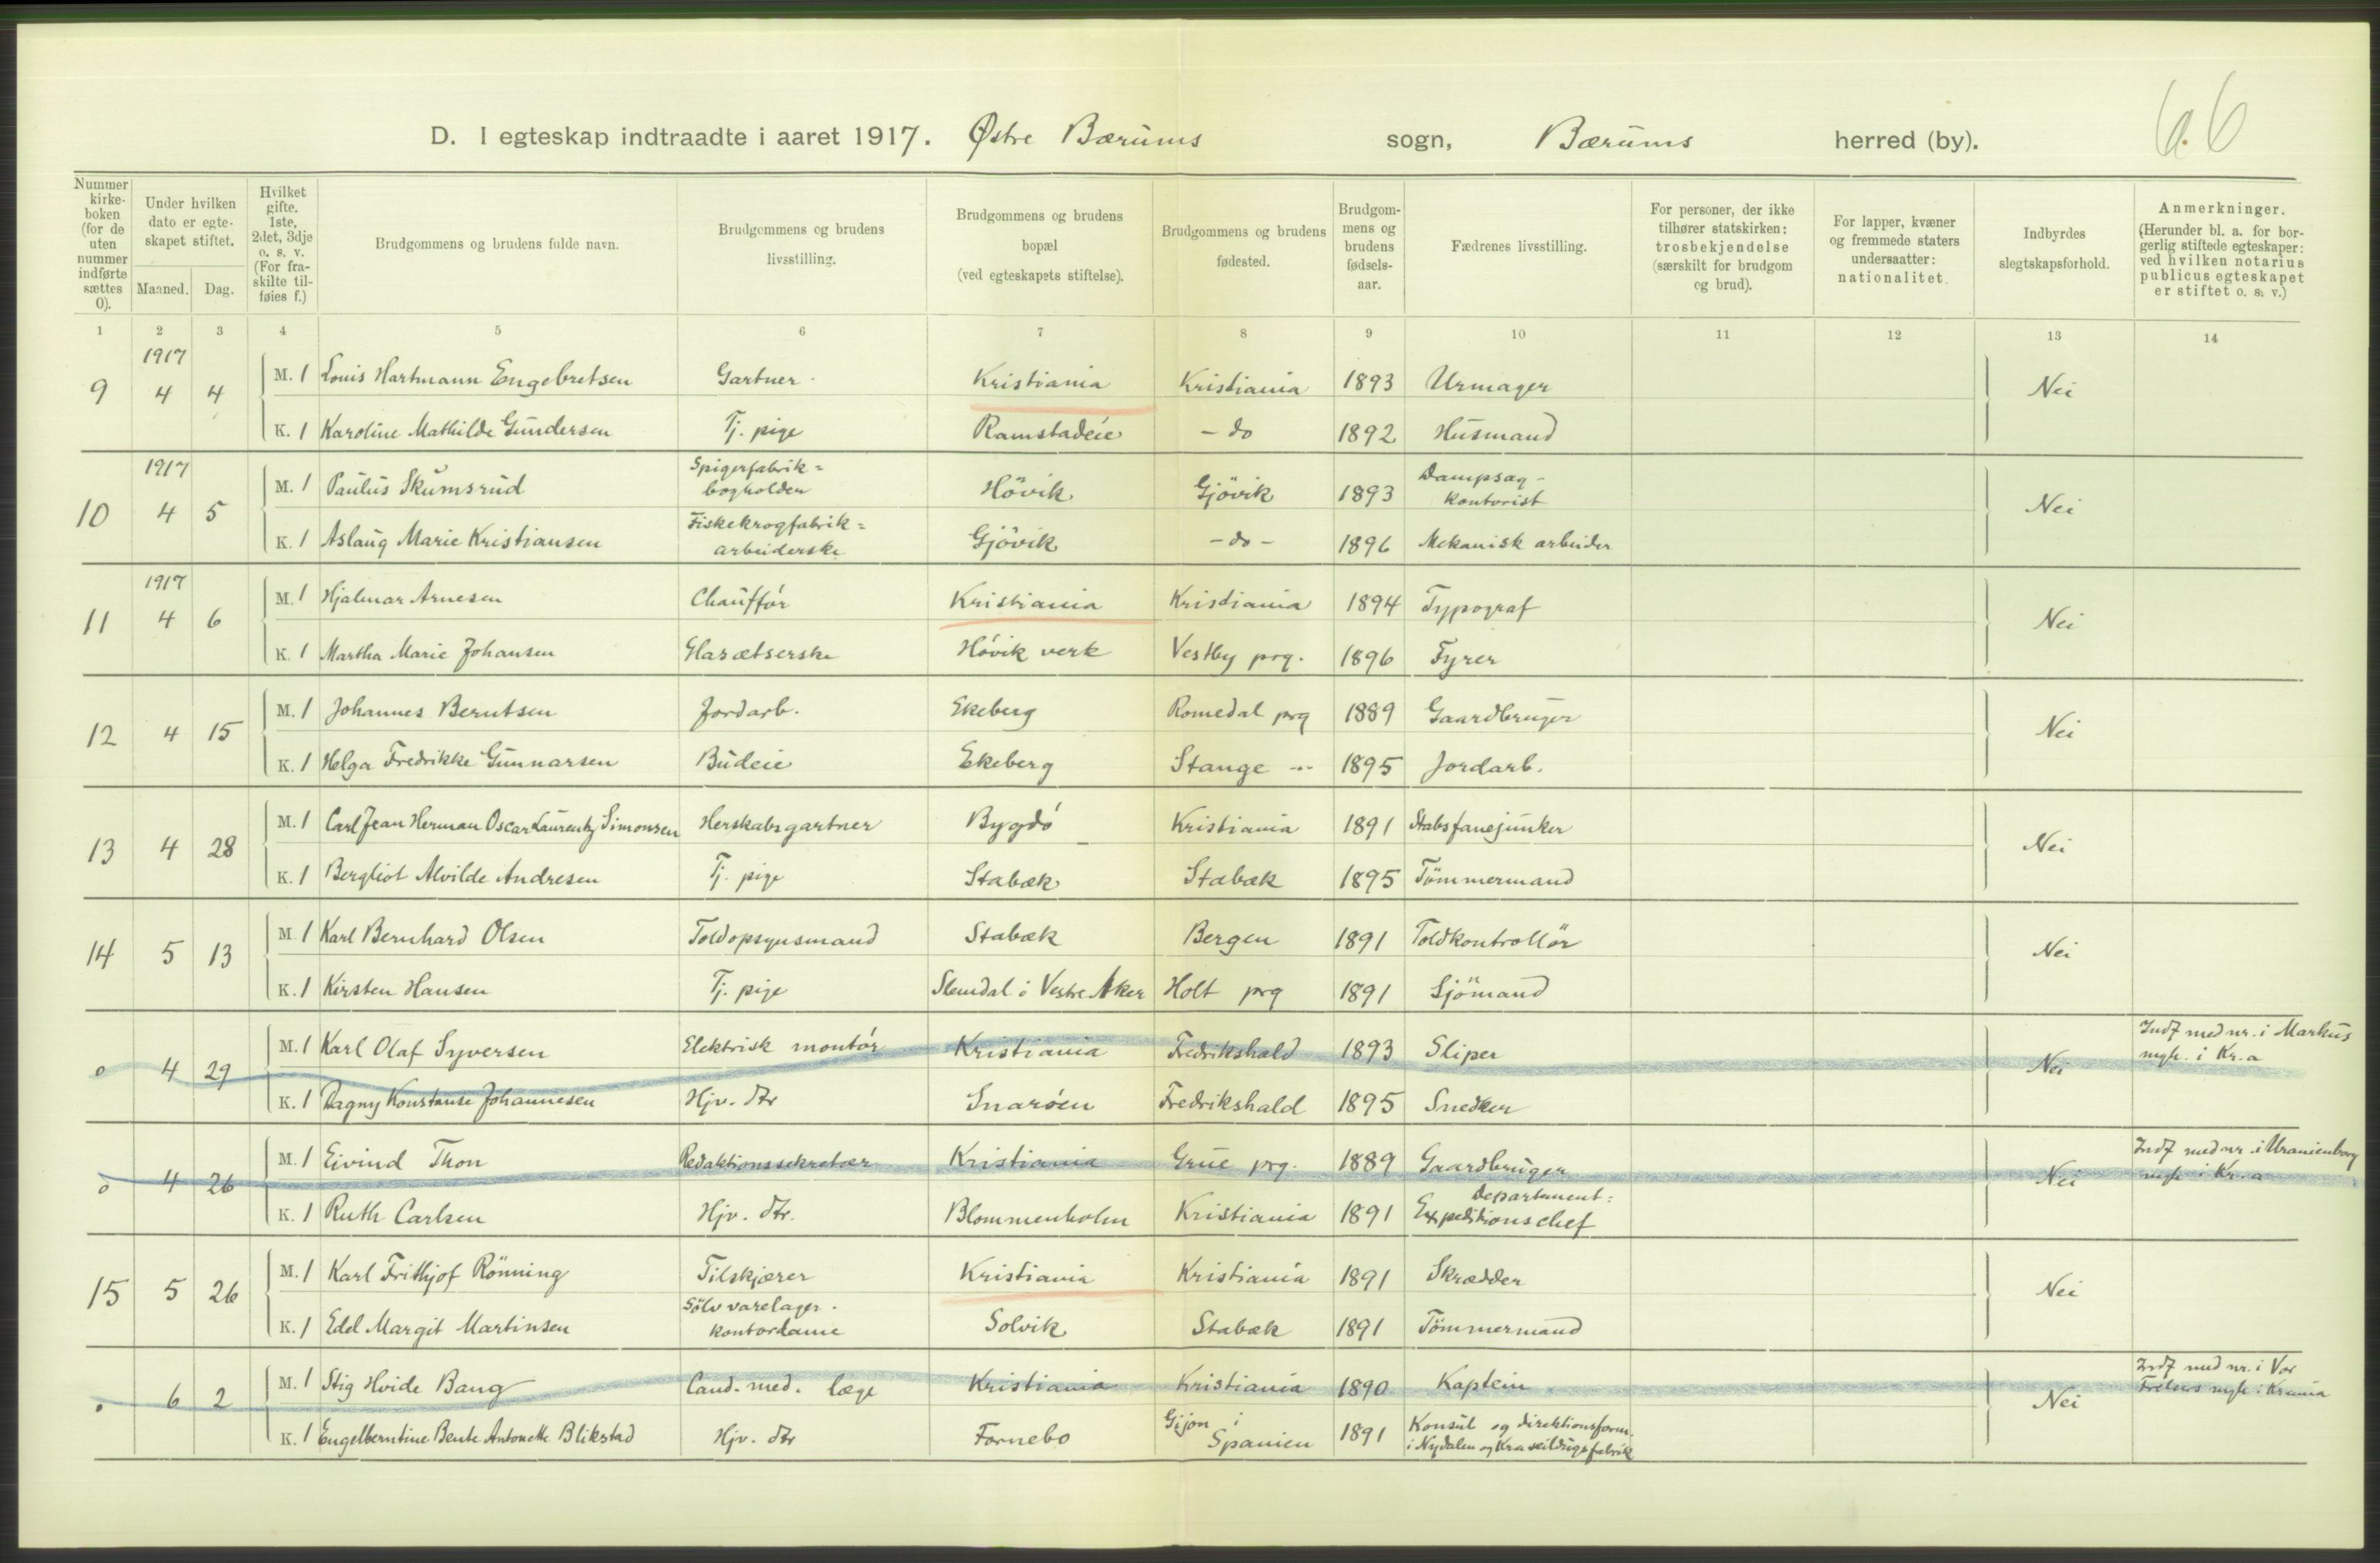 D. I egteskap indtraadte i aaret 1917. Østre Bærums sogn, Bærums herred (by). 6.6
Nummer kirkeboken (for de uten nummer indførte sættes 0).
Under hvilken dato er egteskapet stiftet.
Maaned. Dag.
Hvilket gifte. 1ste, 2det, 3dje o. s. v. (For fraskilte tilføies f.)
Brudgommens og brudens fulde navn.
Brudgommens og brudens livsstilling.
Brudgommens og brudens bopæl (ved egteskapets stiftelse).
Brudgommens og brudens fødested.
Brudgommens og brudens fødselsaar.
Fædrenes livsstilling.
For personer, der ikke tilhører statskirken: trosbekjendelse (særskilt for brudgom og brud).
For lapper, kvæner og fremmede staters undersaatter: nationalitet.
Indbyrdes slegtskapsforhold.
Anmerkninger. (Herunder bl. a. for borgerlig stiftede egteskaper: ved hvilken notarius publicus egteskapet er stiftet o. s. v.)
1 2 3 4 5 6 7 8 9 10 11 12 13 14
1917
9 4 4 M. 1 Louis Hartmann Engebretsen Gartner Kristiania Kristiania 1893 Urmager Nei
K. 1 Karoline Mathilde Gundersen Tj. pige Ramstadeie - do 1892 Husmand
1917
10 4 5 M. 1 Paulus Skumsrud Spigerfabrik= bogholder Hövik Gjövik 1893 Dampsag- kontorist Nei
K. 1 Aslaug Marie Kristiansen Fiskekrogfabrik= arbeiderske Gjövik - do - 1896 Mekanisk arbeider
1917
11 4 6 M. 1 Hjalmar Arnesen Chauffór Kristiania Kristiania 1894 Typograf Nei
K. 1 Martha Marie Johansen Glasætserske Hóvik verk Vestby prg. 1896 Fyrer
12 4 15 M. 1 Johannes Berntsen Jordarb. Ekeberg Romedal prg 1889 Gaardbruger Nei
K. 1 Helga Fredrikke Gunnarsen Budeie Ekeberg Stange -"- 1895 Jordarb.
13 4 28 M. 1 Carl Jean Herman Oscar Laurentz Simonsen Herskabsgartner Bygdó Kristiania 1891 Stabsfanejunker Nei
K. 1 Bergliot Alvilde Andresen Tj. pige Stabæk Stabæk 1895 Tömmermand
14 5 13 M. 1 Karl Bernhard Olsen Toldopsynsmand Stabæk Bergen 1891 Toldkontrollör Nei
K. 1 Kirsten Hansen Tj. pige Slemdal i Vestre Aker Holt prg 1891 Sjömand
0 4 29 M. 1 Karl Olaf Syversen Elektrisk montór Kristiania Fredrikshald 1893 Sliper Nei Indf med nr. i Markus mgh. i Kr.a
K. 1 Dagny Konstanse Johannesen Hjv. dtr Snaróen Fredrikshald 1895 Snedker
0 4 26 M. 1 Eivind Thon Redaktionssekretær Kristiania Grue prg. 1889 Gaardbruger Nei Indf med nr. i Uranienborg mgh i Kr.a
K. 1 Ruth Carlsen Hjv. dtr. Blommenholm Kristiania 1891 Departement: Expeditionschef
15 5 26 M. 1 Karl Frithjof Rönning Tilskjærer Kristiania Kristiania 1891 Skrædder Nei
K. 1 Edel Margit Martinsen Sölvvarelager. kontordame Solvik Stabæk 1891 Tömmermand
0 6 2 M. 1 Stig Hvide Bang Cand. med. læge Kristiania Kristiania 1890 Kaptein Nei Indf med nr. i Vor Frelsers mgh i Krania
K. 1 Engelberntine Bente Antonette Blikstad Hjv. dtr Fornebo Gijon i Spanien 1891 Konsul og direktionsform. i Nydalen og Kra seildugsfabrik